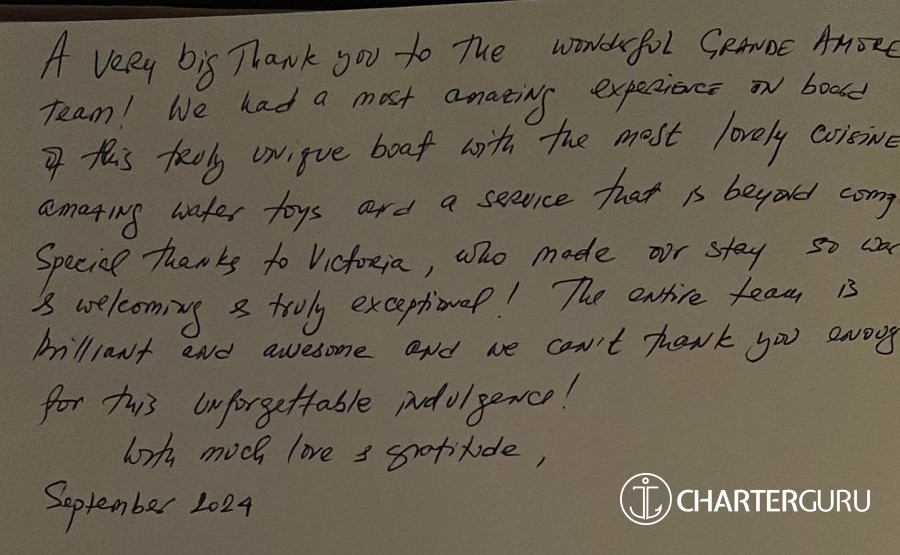 A very big Thank you to the wonderful GRANDE AMORE
team! We had a most amazing experience on board
of this truly unique boat with the most lovely cuisine
amazing water toys and a service that is beyond comp
Special thanks to Victoria, who made our stay so war
& welcoming & truly exceptional! The entire team is
brilliant and awesome and we can't thank you enoug
for this unforgettable indulgence!
With much love & gratitude,
September 2024
CHARTERGURU